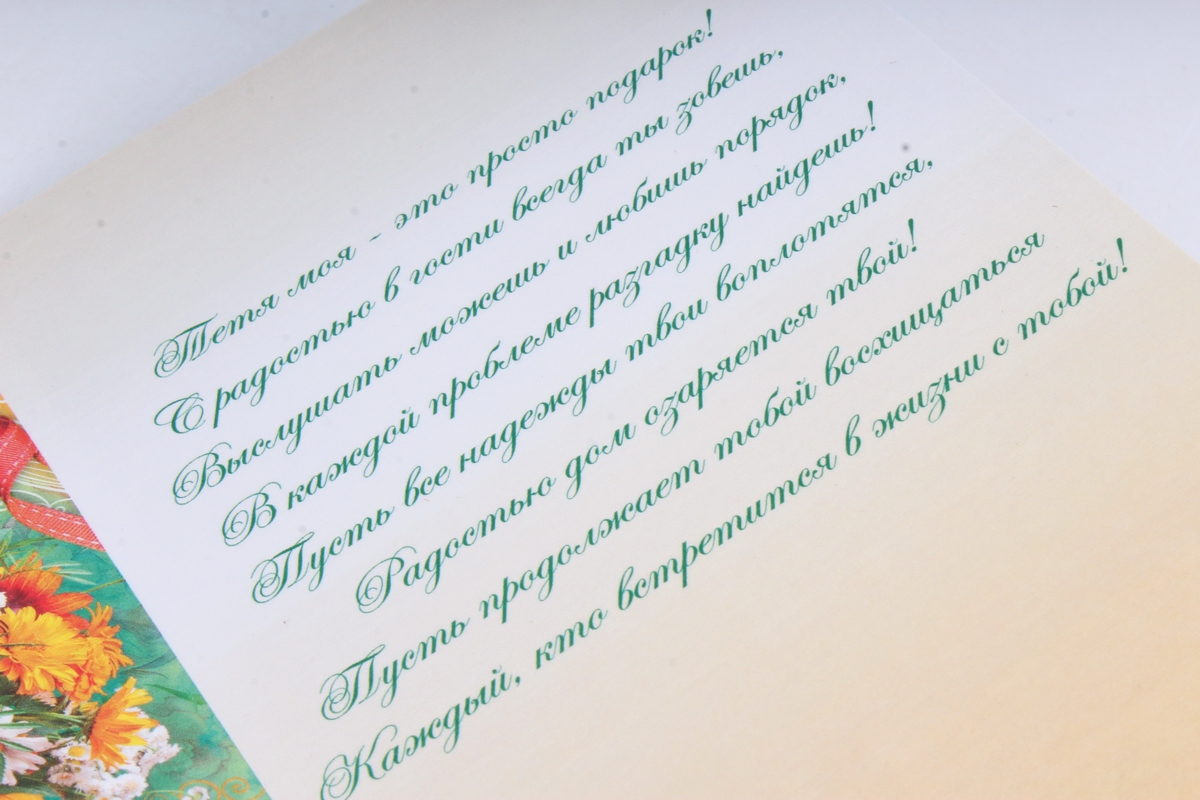 Тетя моя - это просто подарок!
С радостью в гости всегда ты зовешь,
Выслушать можешь и любишь порядок,
В каждой проблеме разгадку найдешь!
Пусть все надежды твои воплотятся,
Радостью дом озаряется твой!
Пусть продолжает тобой восхищаться
Каждый, кто встретится в жизни с тобой!